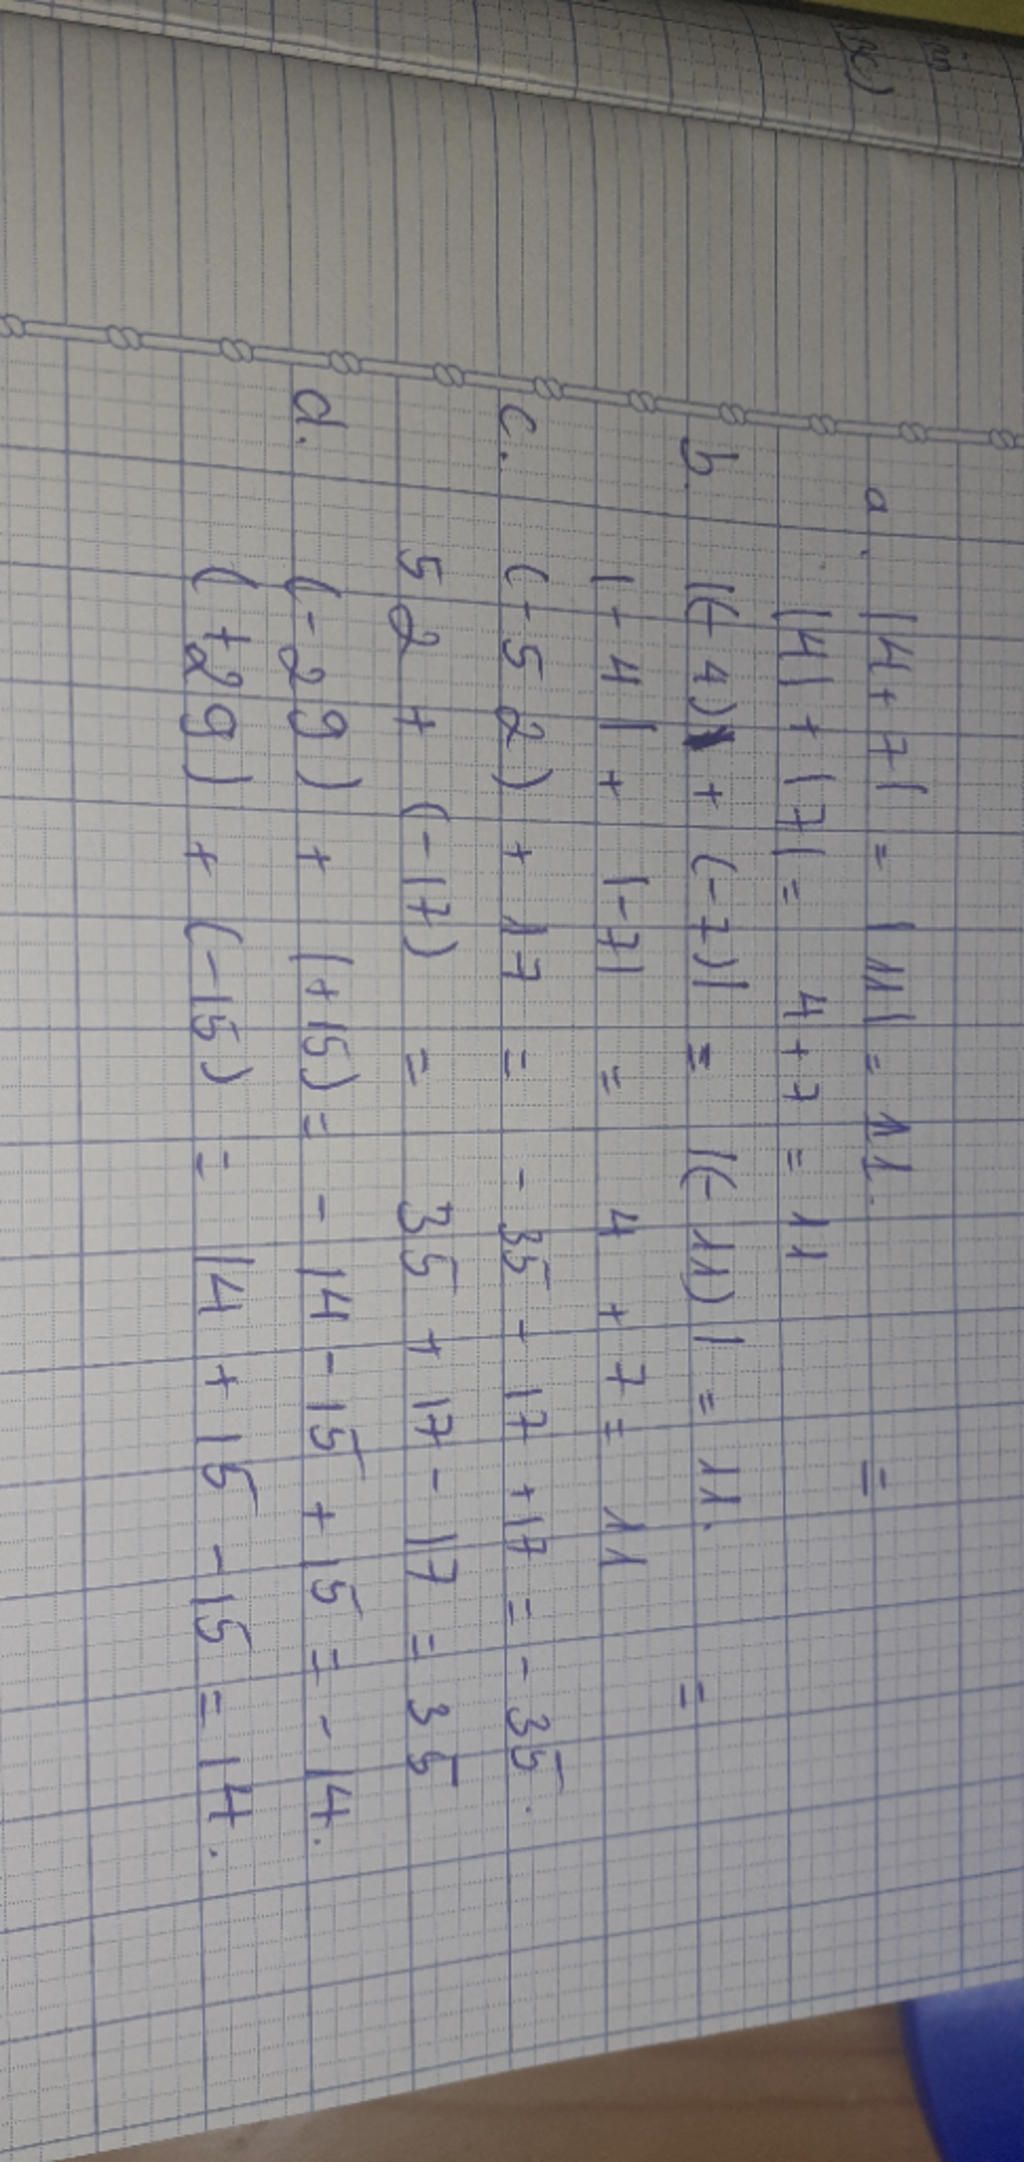 a. |4+7| = |11| = 11. =
|4| + |7| = 4+7 = 11
b. |(-4) + (-7)| = |(-11)| = 11. =
|-4| + |-7| = 4 + 7 = 11
c. (-52) + 17 = -35 - 17 + 17 = -35.
52 + (-17) = 35 + 17 - 17 = 35
d. (-29) + (+15) = -14 - 15 + 15 = -14.
(+29) + (-15) = 14 + 15 - 15 = 14.